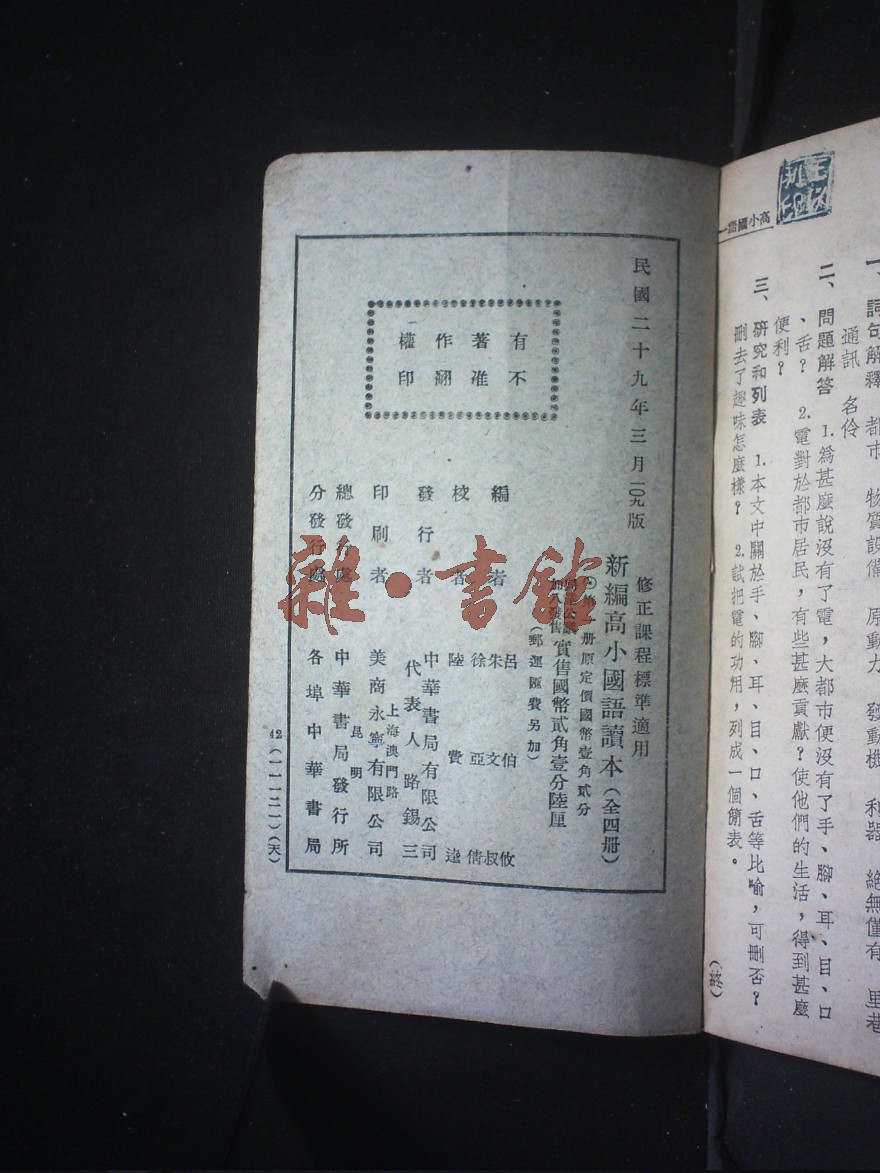 高小國語一
一、詞句解釋　都市　物質設備　原動力　發動機　利器　絕無僅有　里巷
通訊　名伶
二、問題解答　1.爲甚麼說沒有了電，大都市便沒有了手、腳、耳、目、口
、舌？　2.電對於都市居民，有些甚麼貢獻？使他們的生活，得到甚麼
便利？
三、研究和列表　1.本文中關於手、腳、耳、目、口、舌等比喻，可刪否？
刪去了趣味怎麼樣？　2.試把電的功用，列成一個簡表。
（終）
民國二十九年三月一〇九版
修正課程標準適用
新編高小國語讀本（全四册）
册原定價國幣壹角貳分
實售國幣貳角壹分陸厘
（郵運匯費另加）
有不
著准
作翻
權印
編者　呂伯攸
朱文叔
徐亞倩
校者　陸費逵
發行者　中華書局有限公司
代表人路錫三
印刷者　上海澳門路
美商永寧有限公司
總發行處　昆明
中華書局發行所
分發行處　各埠中華書局
42（一一一二一）（天）
雜·書館